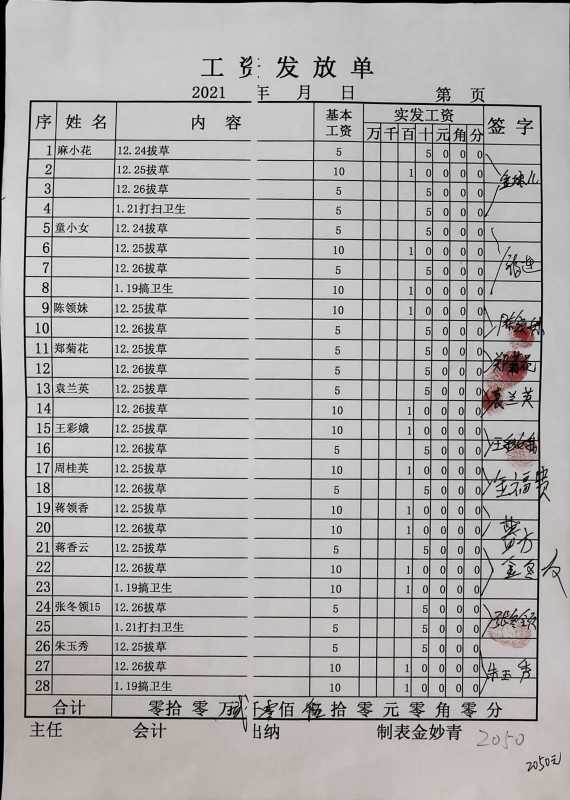 工资发放单
2021 年 月 日 第 页
序 姓名 内容 基本工资 实发工资 签字
万 千 百 十 元 角 分
1 麻小花 12.24拔草 5 5 0 0 0
2 12.25拔草 10 1 0 0 0 0
3 12.26拔草 5 5 0 0 0
4 1.21打扫卫生 5 5 0 0 0
5 童小女 12.24拔草 5 5 0 0 0
6 12.25拔草 10 1 0 0 0 0
7 12.26拔草 5 5 0 0 0
8 1.19搞卫生 10 1 0 0 0 0
9 陈领妹 12.25拔草 10 1 0 0 0 0
10 12.26拔草 5 5 0 0 0
11 郑菊花 12.25拔草 5 5 0 0 0 郑菊花
12 12.26拔草 5 5 0 0 0
13 袁兰英 12.25拔草 5 5 0 0 0 袁兰英
14 12.26拔草 10 1 0 0 0 0
15 王彩娥 12.25拔草 10 1 0 0 0 0 王彩娥
16 12.26拔草 5 5 0 0 0
17 周桂英 12.25拔草 5 5 0 0 0
18 12.26拔草 5 5 0 0 0 金福贵
19 蒋领香 12.25拔草 10 1 0 0 0 0
20 12.26拔草 10 1 0 0 0 0
21 蒋香云 12.25拔草 5 5 0 0 0
22 12.26拔草 10 1 0 0 0 0
23 1.19搞卫生 10 1 0 0 0 0
24 张冬领15 12.26拔草 5 5 0 0 0 张冬领
25 1.21打扫卫生 5 5 0 0 0
26 朱玉秀 12.25拔草 5 5 0 0 0
27 12.26拔草 10 1 0 0 0 0 朱玉秀
28 1.19搞卫生 10 1 0 0 0 0
合计 零拾零万贰仟零佰伍拾零元零角零分
主任 会计 出纳 制表金妙青 2050
2050元